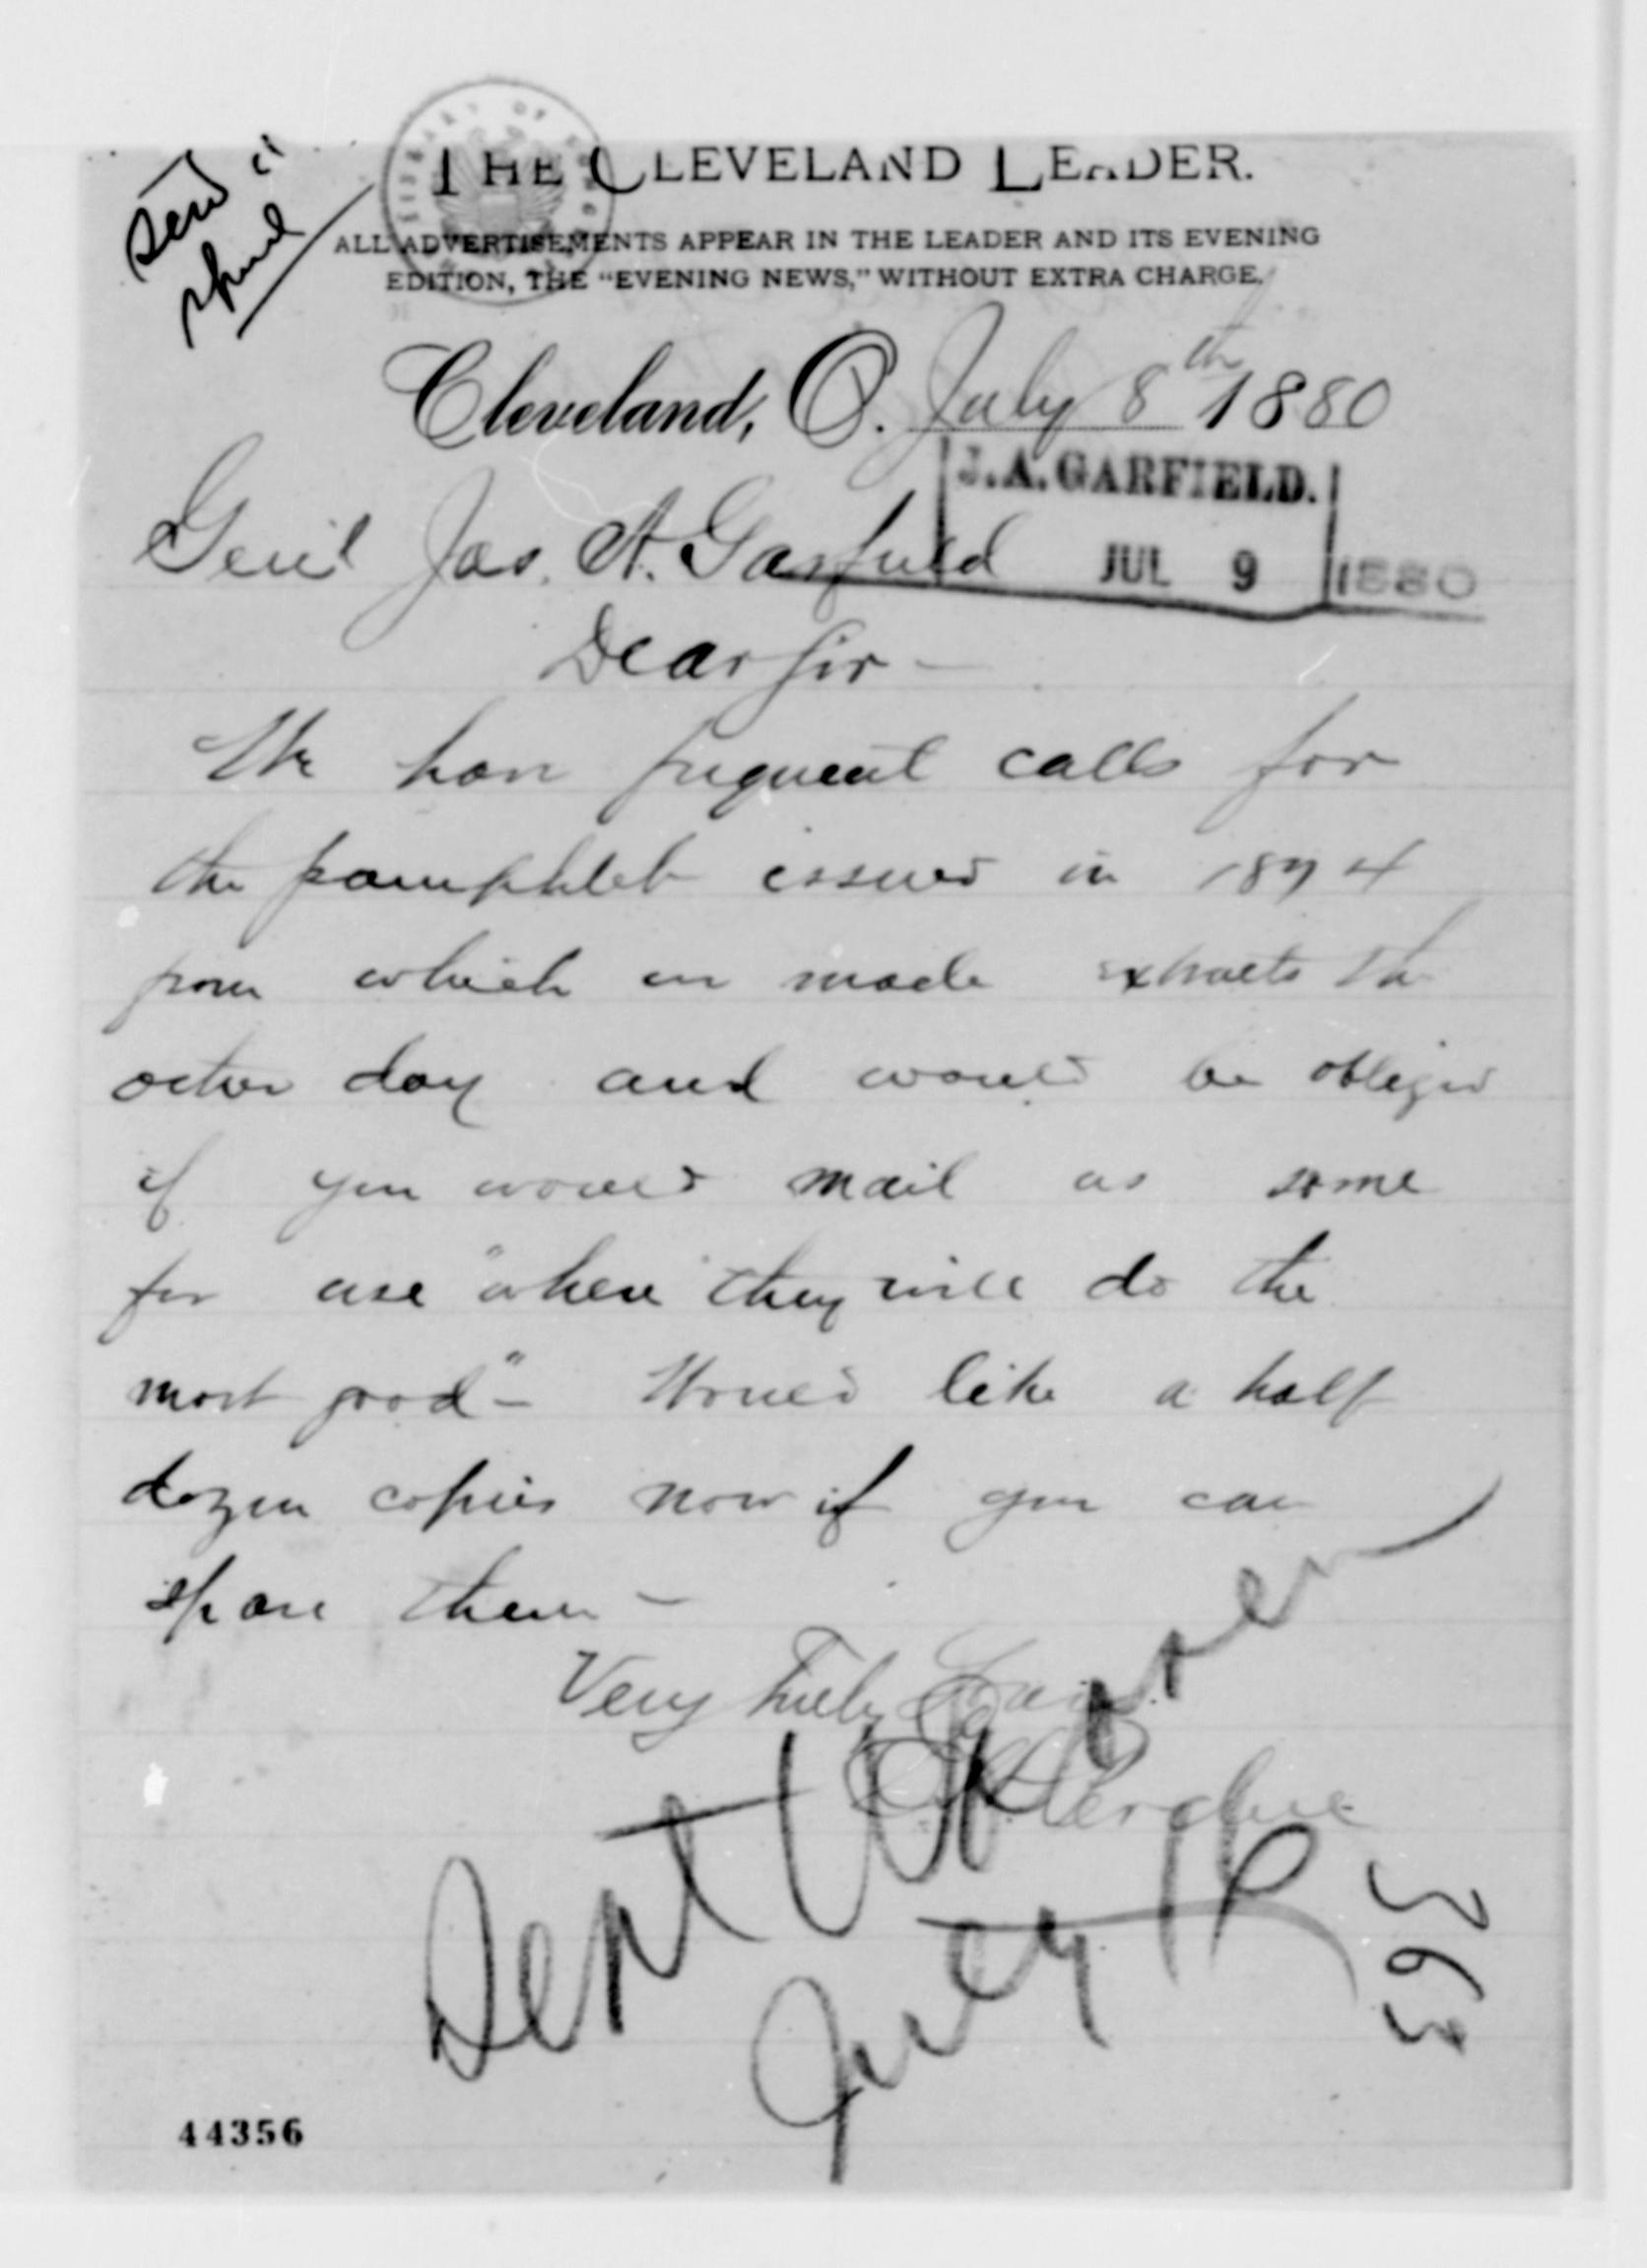 THE CLEVELAND LEADER.
ALL ADVERTISEMENTS APPEAR IN THE LEADER AND ITS EVENING
EDITION, THE "EVENING NEWS," WITHOUT EXTRA CHARGE.
Cleveland, O. July 8th 1880
J.A. GARFIELD.
JUL 9 1880
Gen'l Jas. A. Garfield
Dear Sir —
We have frequent calls for
the pamphlet issued in 1874
from which we made extracts the
other day and would be obliged
if you would mail us some
for use "where they will do the
most good" — Would like a half
dozen copies now if you can
spare them —
Very Truly Yours
Perdue
Sent
July 12
363
44356